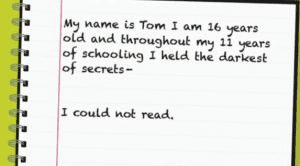 My name is Tom I am 16 years
old and throughout my 11 years
of schooling I held the darkest
of secrets-
I could not read.